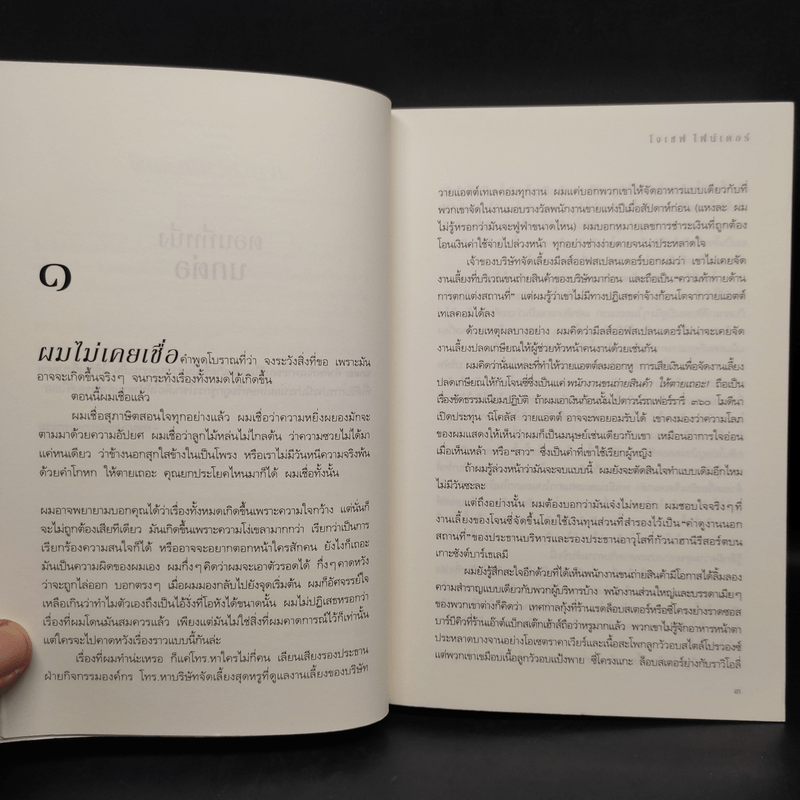 ๑
ผมไม่เคยเชื่อ คำพูดโบราณที่ว่า จงระวังสิ่งที่ขอ เพราะมัน
อาจจะเกิดขึ้นจริงๆ จนกระทั่งเรื่องทั้งหมดได้เกิดขึ้น
ตอนนี้ผมเชื่อแล้ว
ผมเชื่อสุภาษิตสอนใจทุกอย่างแล้ว ผมเชื่อว่าความหยิ่งผยองมักจะ
ตามมาด้วยความอัปยศ ผมเชื่อว่าลูกไม้หล่นไม่ไกลต้น ว่าความซวยไม่ได้มา
แค่หนเดียว ว่าช้างนอกสุกใสข้างในเป็นโพรง หรือเราไม่มีวันหนีความจริงพ้น
ด้วยคำโกหก ให้ตายเถอะ คุณยกประโยคไหนมาก็ได้ ผมเชื่อทั้งนั้น
ผมอาจพยายามบอกคุณได้ว่าเรื่องทั้งหมดเกิดขึ้นเพราะความใจกว้าง แต่นั่นก็
จะไม่ถูกต้องเสียทีเดียว มันเกิดขึ้นเพราะความโง่เขลามากกว่า เรียกว่าเป็นการ
เรียกร้องความสนใจก็ได้ หรืออาจจะอยากตอกหน้าใครสักคน ยังไงก็เถอะ
มันเป็นความผิดของผมเอง ผมกึ่งๆ คิดว่าผมจะเอาตัวรอดได้ กึ่งๆ คาดหวัง
ว่าจะถูกไล่ออก บอกตรงๆ เมื่อผมมองกลับไปยังจุดเริ่มต้น ผมก็อัศจรรย์ใจ
เหลือเกินว่าทำไมตัวเองถึงเป็นไอ้งั่งที่โอหังได้ขนาดนั้น ผมไม่ปฏิเสธหรอกว่า
เรื่องที่ผมโดนมันสมควรแล้ว เพียงแต่มันไม่ใช่สิ่งที่ผมคาดการณ์ไว้ก็เท่านั้น
แต่ใครจะไปคาดหวังเรื่องราวแบบนี้กันล่ะ
เรื่องที่ผมทำน่ะเหรอ ก็แค่โทร.หาใครไม่กี่คน เลียนเสียงรองประธาน
ฝ่ายกิจกรรมองค์กร โทร.หาบริษัทจัดเลี้ยงสุดหรูที่ดูแลงานเลี้ยงของบริษัท
โจเซฟ ไฟน์เดอร์
วายแอตต์เทเลคอมทุกงาน ผมแค่บอกพวกเขาให้จัดอาหารแบบเดียวกับที่
พวกเขาจัดในงานมอบรางวัลพนักงานขายแห่งปีเมื่อสัปดาห์ก่อน (แหงละ ผม
ไม่รู้หรอกว่ามันจะฟู่ฟ่าขนาดไหน) ผมบอกหมายเลขการชำระเงินที่ถูกต้อง
โอนเงินค่าใช้จ่ายไปล่วงหน้า ทุกอย่างช่างง่ายดายจนน่าประหลาดใจ
เจ้าของบริษัทจัดเลี้ยงมีลส์ออฟสเปลนเดอร์บอกผมว่า เขาไม่เคยจัด
งานเลี้ยงที่บริเวณขนถ่ายสินค้าของบริษัทมาก่อน และถือเป็น “ความท้าทายด้าน
การตกแต่งสถานที่” แต่ผมรู้ว่าเขาไม่มีทางปฏิเสธค่าจ้างก้อนโตจากวายแอตต์
เทเลคอมได้ลง
ด้วยเหตุผลบางอย่าง ผมคิดว่ามีลส์ออฟสเปลนเดอร์ไม่น่าจะเคยจัด
งานเลี้ยงปลดเกษียณให้ผู้ช่วยหัวหน้าคนงานด้วยเช่นกัน
ผมคิดว่านั่นแหละที่ทำให้วายแอตต์ลมออกหู การเสียเงินเพื่อจัดงานเลี้ยง
ปลดเกษียณให้กับโจนซี่ซึ่งเป็นแค่ พนักงานขนถ่ายสินค้า ให้ตายเถอะ! ถือเป็น
เรื่องขัดธรรมเนียมปฏิบัติ ถ้าผมเอาเงินก้อนนั้นไปดาวน์รถเฟอร์รารี่ ๓๖๐ โมดีนา
เปิดประทุน นิโคลัส วายแอตต์ อาจจะพอยอมรับได้ เขาคงมองว่าความโลภ
ของผมแสดงให้เห็นว่าผมก็เป็นมนุษย์เช่นเดียวกับเขา เหมือนอาการใจอ่อน
เมื่อเห็นเหล้า หรือ “สาว” ซึ่งเป็นคำที่เขาใช้เรียกผู้หญิง
ถ้าผมรู้ล่วงหน้าว่ามันจะจบแบบนี้ ผมยังจะตัดสินใจทำแบบเดิมอีกไหม
ไม่มีวันซะละ
แต่ถึงอย่างนั้น ผมต้องบอกว่ามันเจ๋งไม่หยอก ผมชอบใจจริงๆ ที่
งานเลี้ยงของโจนซี่จัดขึ้นโดยใช้เงินทุนส่วนที่สำรองไว้เป็น “ค่าดูงานนอก
สถานที่” ของประธานบริหารและรองประธานอาวุโสที่กัวนาฮานีรีสอร์ตบน
เกาะซังต์บาร์เธเลมี
ผมยังรู้สึกสะใจอีกด้วยที่ได้เห็นพนักงานขนถ่ายสินค้ามีโอกาสได้ลิ้มลอง
ความสำราญแบบเดียวกับพวกผู้บริหารบ้าง พนักงานส่วนใหญ่และบรรดาเมียๆ
ของพวกเขาต่างก็คิดว่า เทศกาลกุ้งที่ร้านเรดล็อบสเตอร์หรือซี่โครงย่างราดซอส
บาร์บีคิวที่ร้านเอ๊าต์แบ็กสเต๊กเฮ้าส์ถือว่าหรูมากแล้ว พวกเขาไม่รู้จักอาหารหน้าตา
ประหลาดบางจานอย่างโอเซตราคาเวียร์และเนื้อสะโพกลูกวัวอบสไตล์โปรวองซ์
แต่พวกเขาเขมือบเนื้อลูกวัวอบแป้งพาย ซี่โครงแกะ ล็อบสเตอร์ย่างกับราวิโอลี่
๓